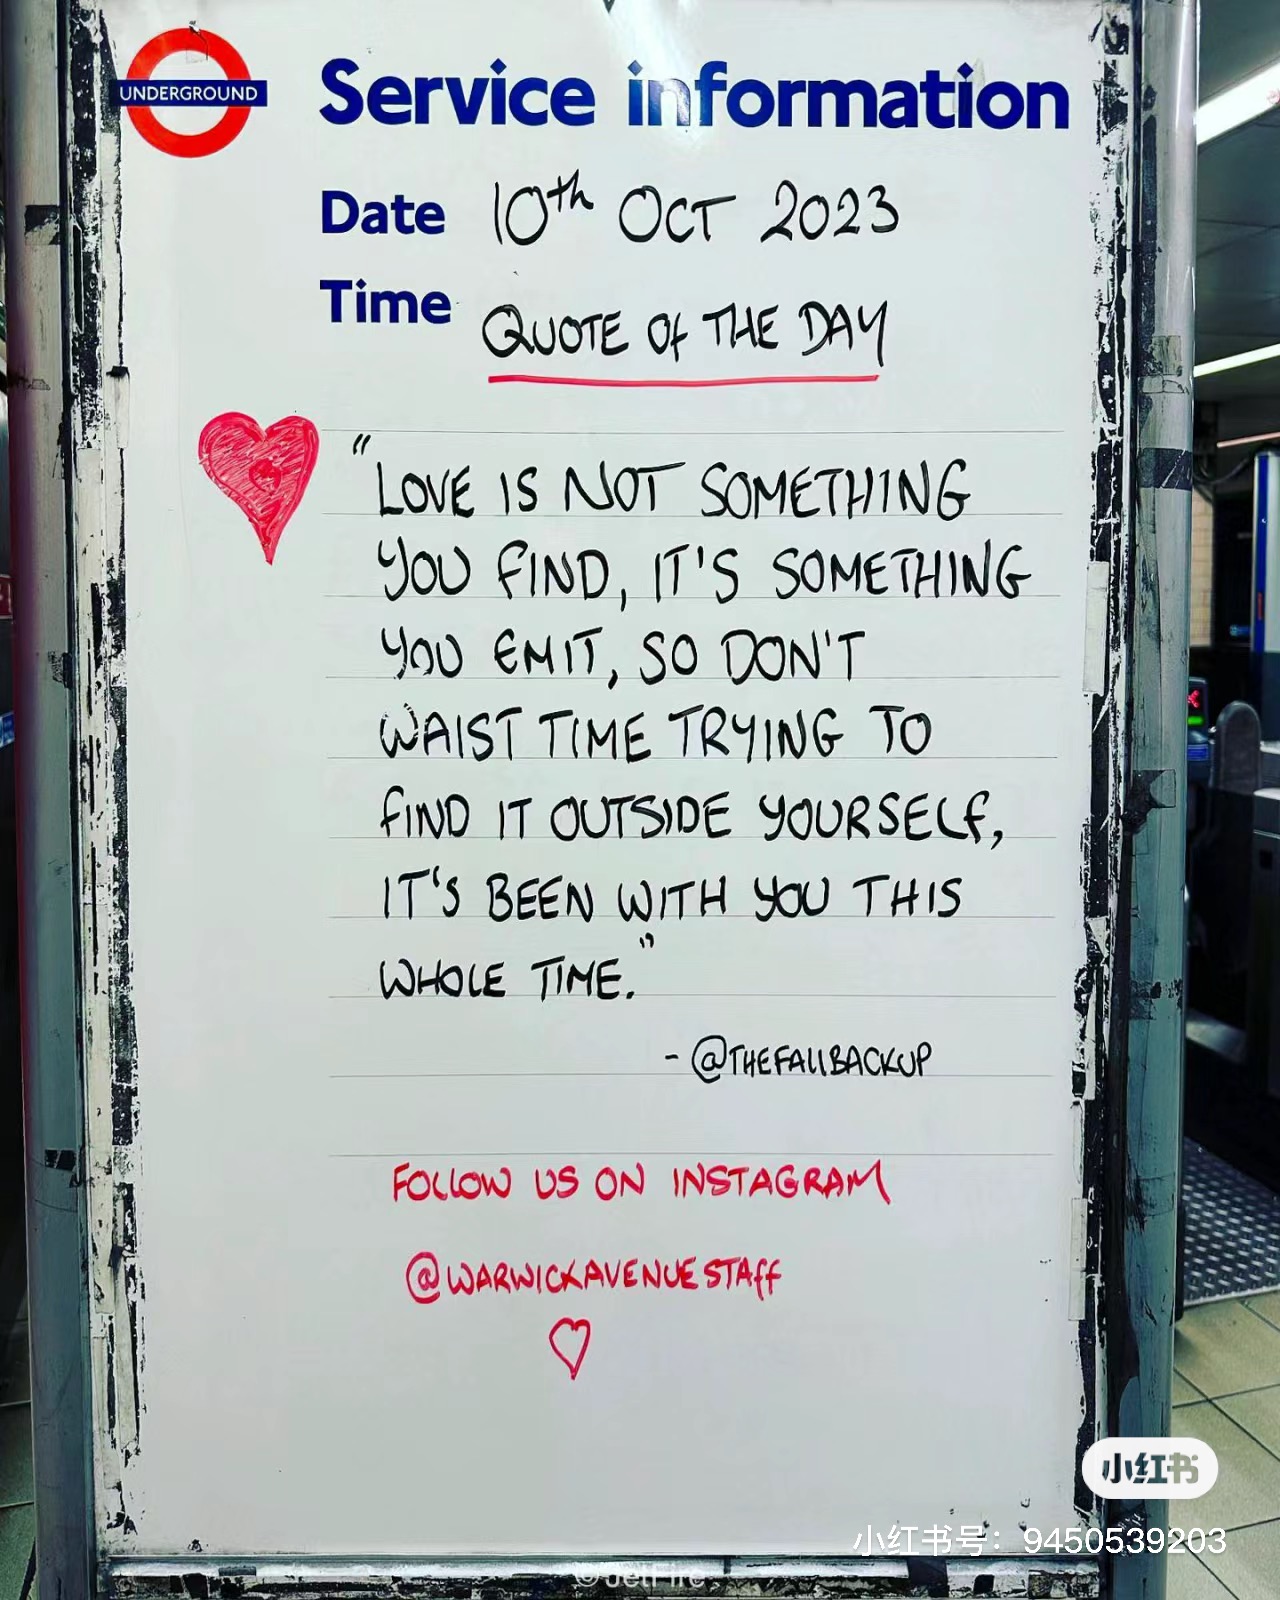 UNDERGROUND
Service information
Date 10th OCT 2023
Time
QUOTE OF THE DAY
"LOVE IS NOT SOMETHING
YOU FIND, IT'S SOMETHING
YOU EMIT, SO DON'T
WAIST TIME TRYING TO
FIND IT OUTSIDE YOURSELF,
IT'S BEEN WITH YOU THIS
WHOLE TIME."
- @THEFALLBACKUP
FOLLOW US ON INSTAGRAM
@WARWICKAVENUESTAFF
小红书
小红书号：9450539203